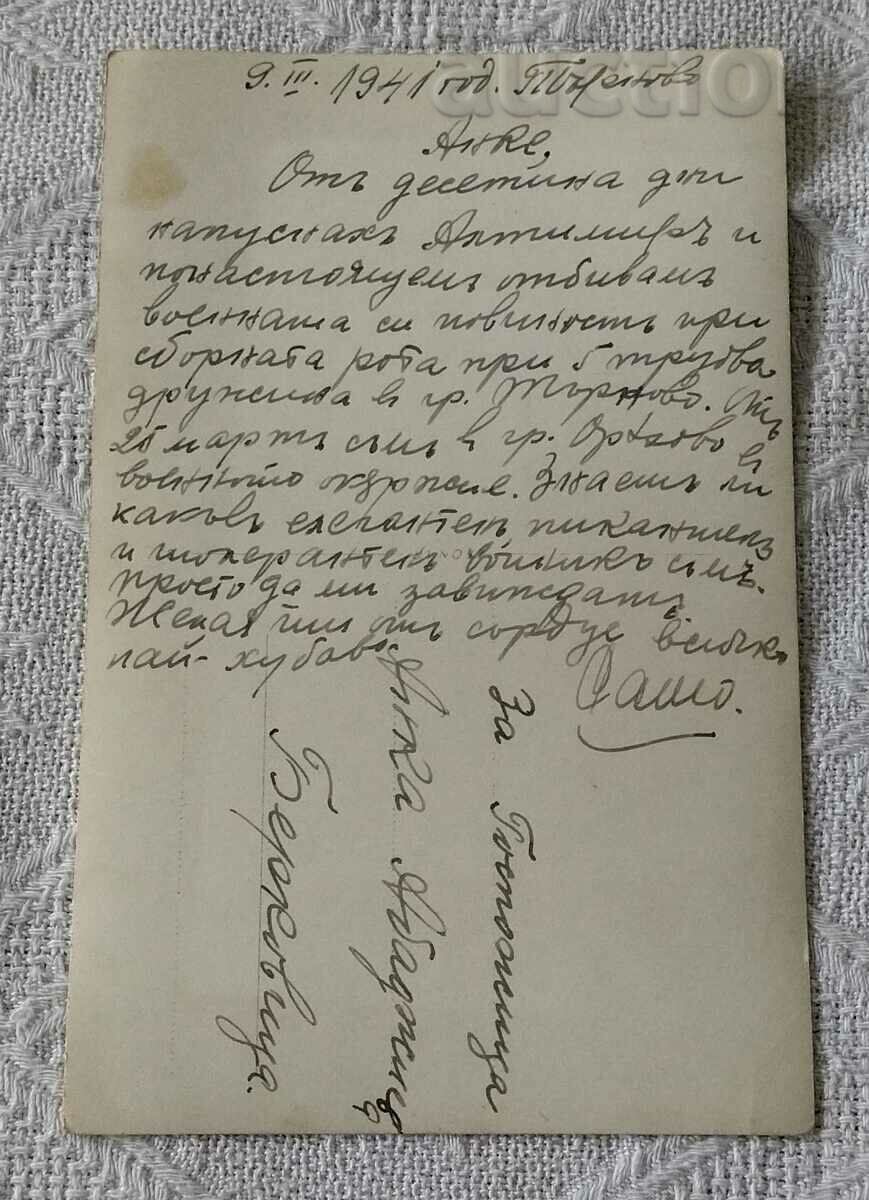 9. III. 1941 год. Търново
Анке,
Отъ десетина дни
напуснахъ Антимиръ и
понастоящемъ отбивамъ
военната си повинность при
сборната рота при 5 трудова
дружина въ гр. Търново. Отъ
25 мартъ съмъ въ гр. Орѣхово въ
военното окржжие. Знаешъ ли
какъвъ елегантенъ, пикантенъ
и толерантенъ войникъ съмъ.
просто да ми завиждатъ.
Желая ти отъ сърдце всичко
най-хубаво.
Сашо.
За Госпожица
Анка Абаджиева
Берковица.
auction